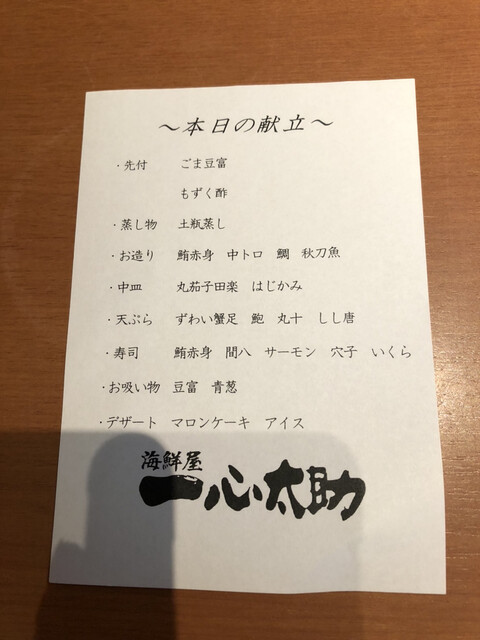 ～本日の献立～
・先付 ごま豆富
もずく酢
・蒸し物 土瓶蒸し
・お造り 鮪赤身 中トロ 鯛 秋刀魚
・中皿 丸茄子田楽 はじかみ
・天ぷら ずわい蟹足 鮑 丸十 しし唐
・寿司 鮪赤身 間八 サーモン 穴子 いくら
・お吸い物 豆富 青葱
・デザート マロンケーキ アイス
海鮮屋
一心太助